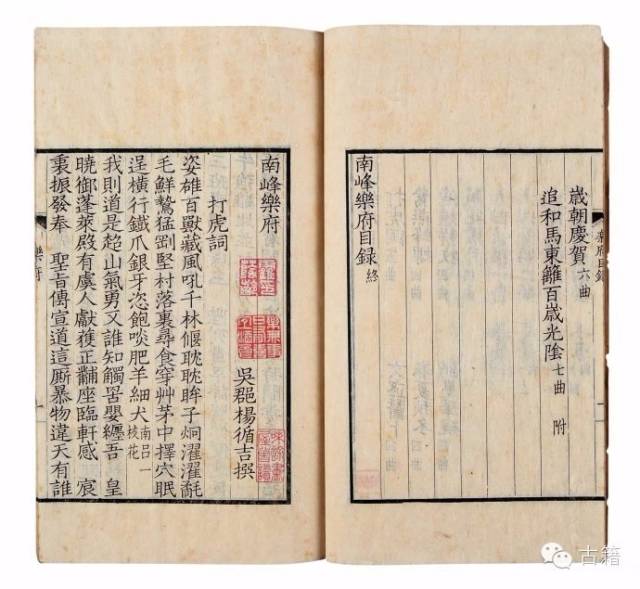 歲朝慶賀六曲
追和馬東籬百歲光陰七曲 附
南峰樂府目錄終
樂府目錄
南峰樂府
吳郡楊循吉撰
打虎詞
姿雄百獸藏風吼千林偃眈眈眸子炯濯濯毳
毛鮮驁猛剛堅村落裏尋食穿茅中擇穴眠
逞橫行鐵爪銀牙恣飽啖肥羊細犬南呂一枝花
我則道是趫山氣勇又誰知觸罟嬰纏吾 皇
曉御蓬萊殿有虞人獻獲正黼座臨軒感 宸
裏振發奉 聖旨傳宣道這厮暴物違天有誰
樂府
一
古籍